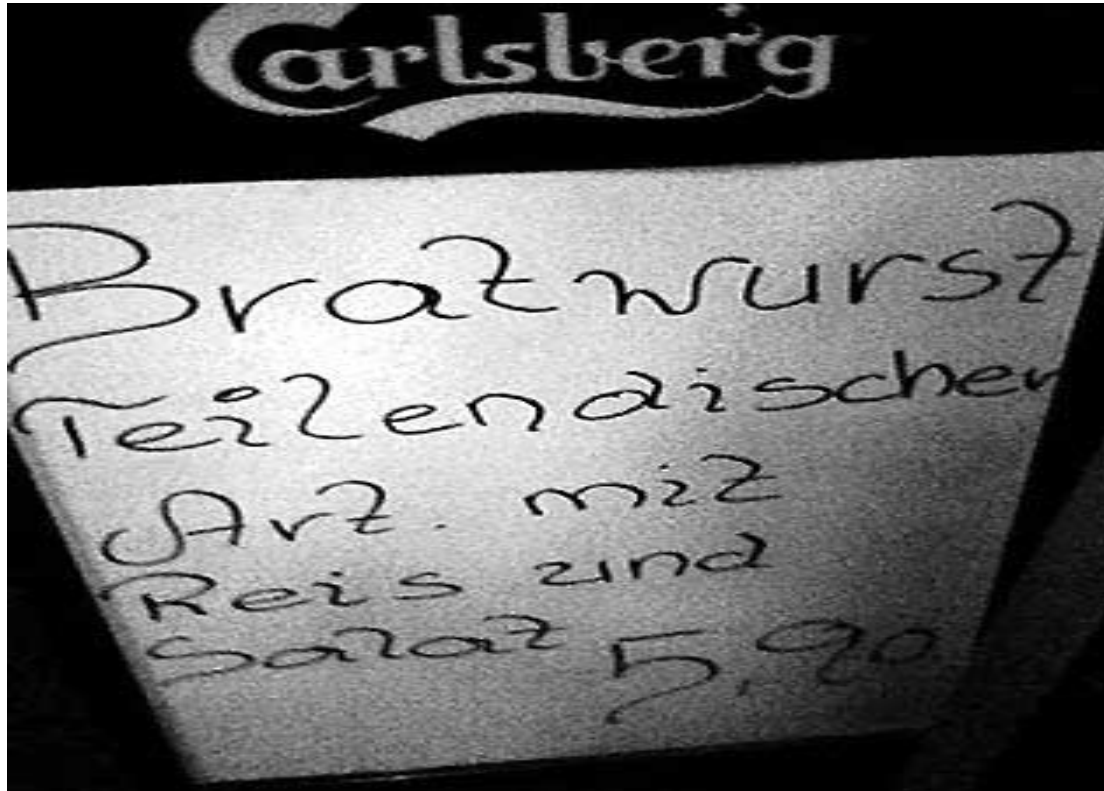 Carlsberg
Bratwurst
Teilendischer
Art. mit
Reis und
Salat 5,90